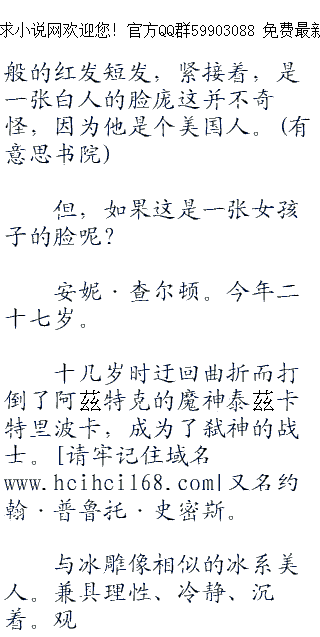 求小说网欢迎您! 官方QQ群59903088 免费最新
般的红发短发，紧接着，是
一张白人的脸庞这并不奇
怪，因为他是个美国人。(有
意思书院)
但，如果这是一张女孩
子的脸呢？
安妮·查尔顿。今年二
十七岁。
十几岁时迂回曲折而打
倒了阿兹特克的魔神泰兹卡
特里波卡，成为了弑神的战
士。[请牢记住域名
www.hcihci168.com|又名约
翰·普鲁托·史密斯。
与冰雕像相似的冰系美
人。兼具理性、冷静、沉
着。观